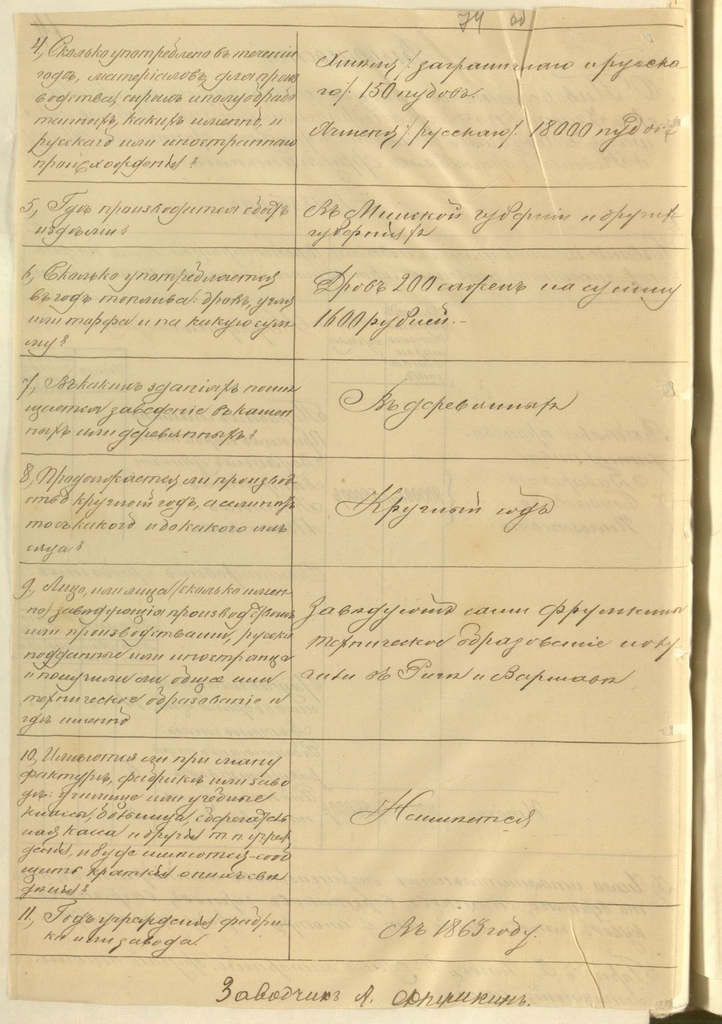 74 об
4, Сколько употреблено въ теченіи
годъ, матеріаловъ для произ
водства, сырыхъ и полуобрабо
танныхъ, какихъ именно, и
русскаго или иностраннаго
происхожденія?
Хмеля /: заграничнаго и русска
го /: 150 пудовъ.
Ячменя /: русскаго /: 18000 пудовъ
5, Гдѣ производится сбытъ
издѣлій?
Въ Минской губерніи и другихъ
губерніяхъ
6, Сколько употребляется
въ годъ топлива: дровъ, угля
или торфа и на какую сум
му?
Дровъ 200 саженъ на сумму
1600 рублей.
7, Въ какихъ зданіяхъ помѣ
щается заведеніе въ камен
ныхъ или деревянныхъ?
Въ деревянныхъ
8, Продолжается ли производ
ство круглый годъ, а если нѣтъ
то съ какого и до какого мѣ
сяца?
Круглый годъ
9, Лицо, или лица /сколько имен
но/ завѣдующія производствомъ
или производствами, русскіе
подданные или иностранцы
и получили ли общее или
техническое образованіе и
гдѣ именно
Завѣдуютъ сами Фрумкины
техническое образованіе полу
чили въ Ригѣ и Варшавѣ
10, Имѣются ли при ману
фактурѣ, фабрикѣ или заво
дѣ: училище или учебные
классы, больница, сберегатель
ная касса и другія т. п. учреж
денія, и буде имѣются – сооб
щить краткія о нихъ свѣ
дѣнія?
Неимѣется
11, Годъ учрежденія фабри
ки или завода.
Въ 1863 году.
Заводчикъ А. Фрумкинъ.